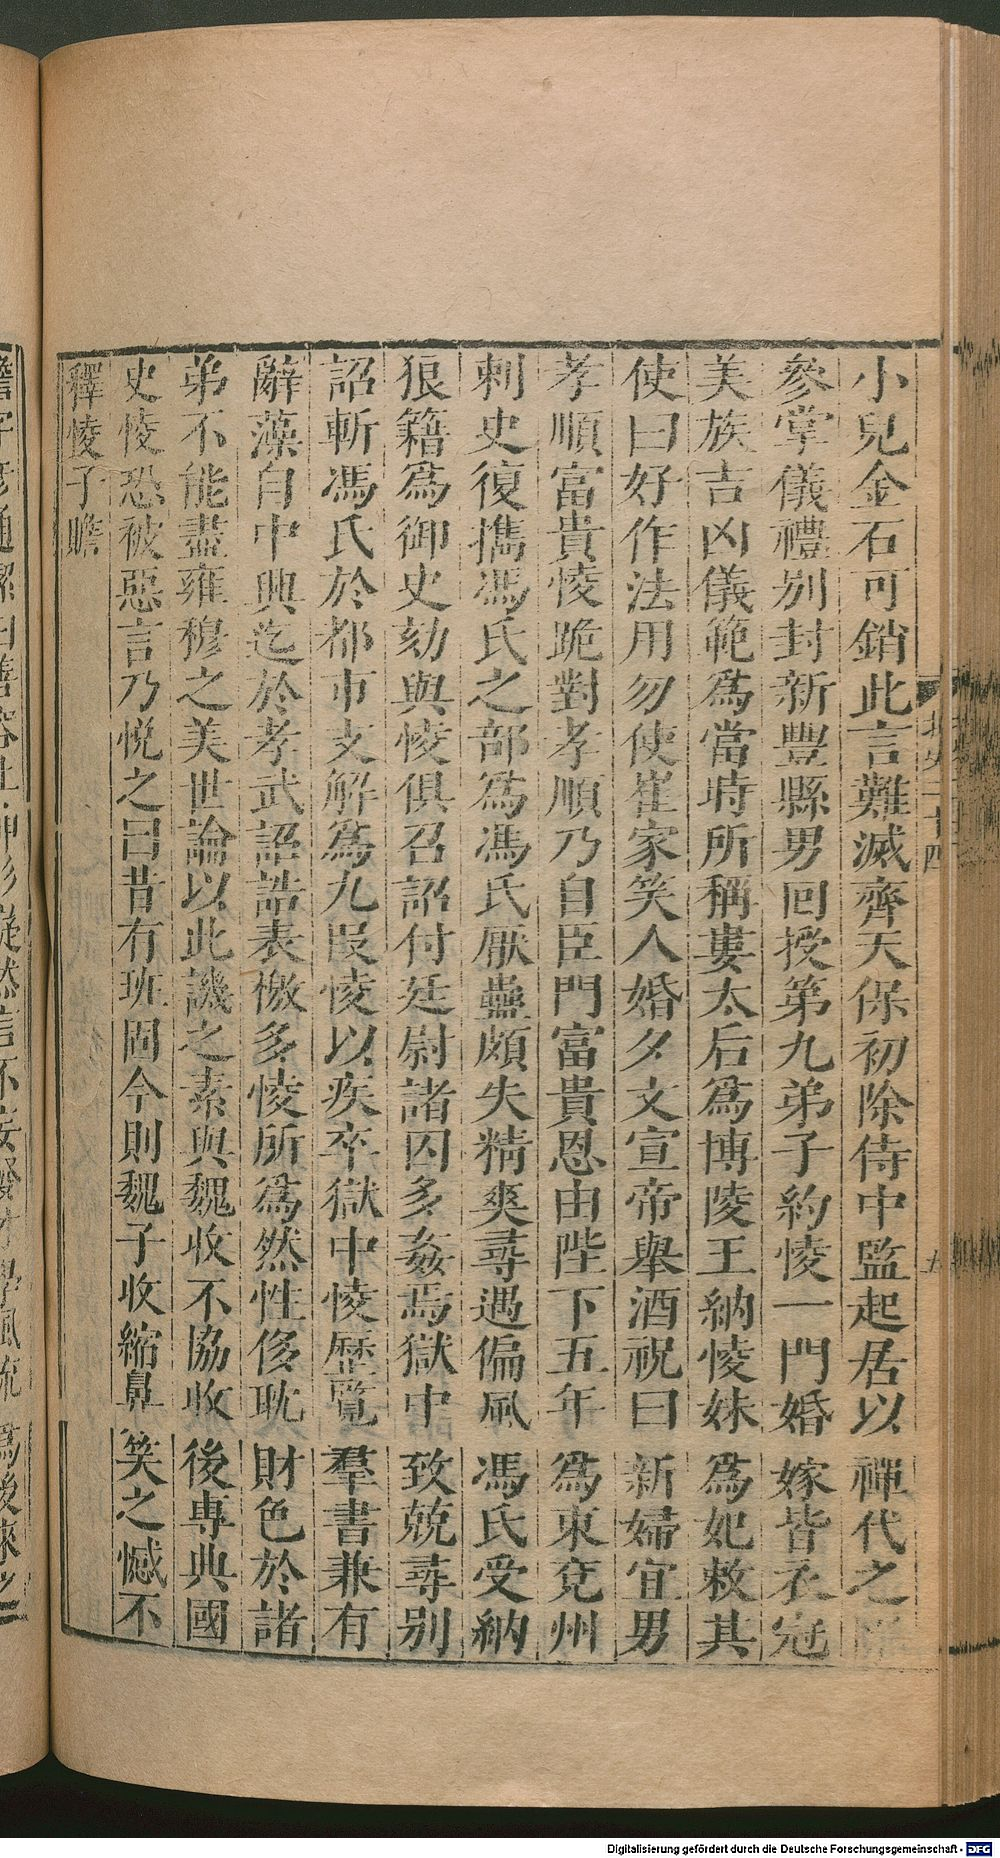 小兒金石可銷此言難滅齊天保初除侍中監起居以禪代之際
參掌儀禮別封新豐縣男回授第九弟子約㥄一門婚嫁皆衣冠
美族吉凶儀範爲當時所稱婁太后爲博陵王納㥄妹爲妃敕其
使曰好作法用勿使崔家笑人婚夕文宣帝舉酒祝曰新婦宜男
孝順富貴㥄跪對孝順乃自臣門富貴恩由陛下五年爲東兗州
刺史復擕馮氏之部爲馮氏厭蠱頗失精爽尋遇偏風馮氏受納
狼籍爲御史劾與㥄俱召詔付廷尉諸囚多姦焉獄中致競尋別
詔斬馮氏於都市支解爲九段㥄以疾卒獄中㥄歷覽羣書兼有
辭藻自中興迄於孝武詔誥表檄多㥄所爲然性侈耽財色於諸
弟不能盡雍穆之美世論以此譏之素與魏收不協收後專典國
史㥄恐被惡言乃悅之曰昔有班固今則魏子收縮鼻笑之憾不
釋㥄子瞻
北史二十四
瞻字彥通潔白善容止神彩嶷然言不妄發才學風流爲後來之
Digitalisierung gefördert durch die Deutsche Forschungsgemeinschaft - DFG